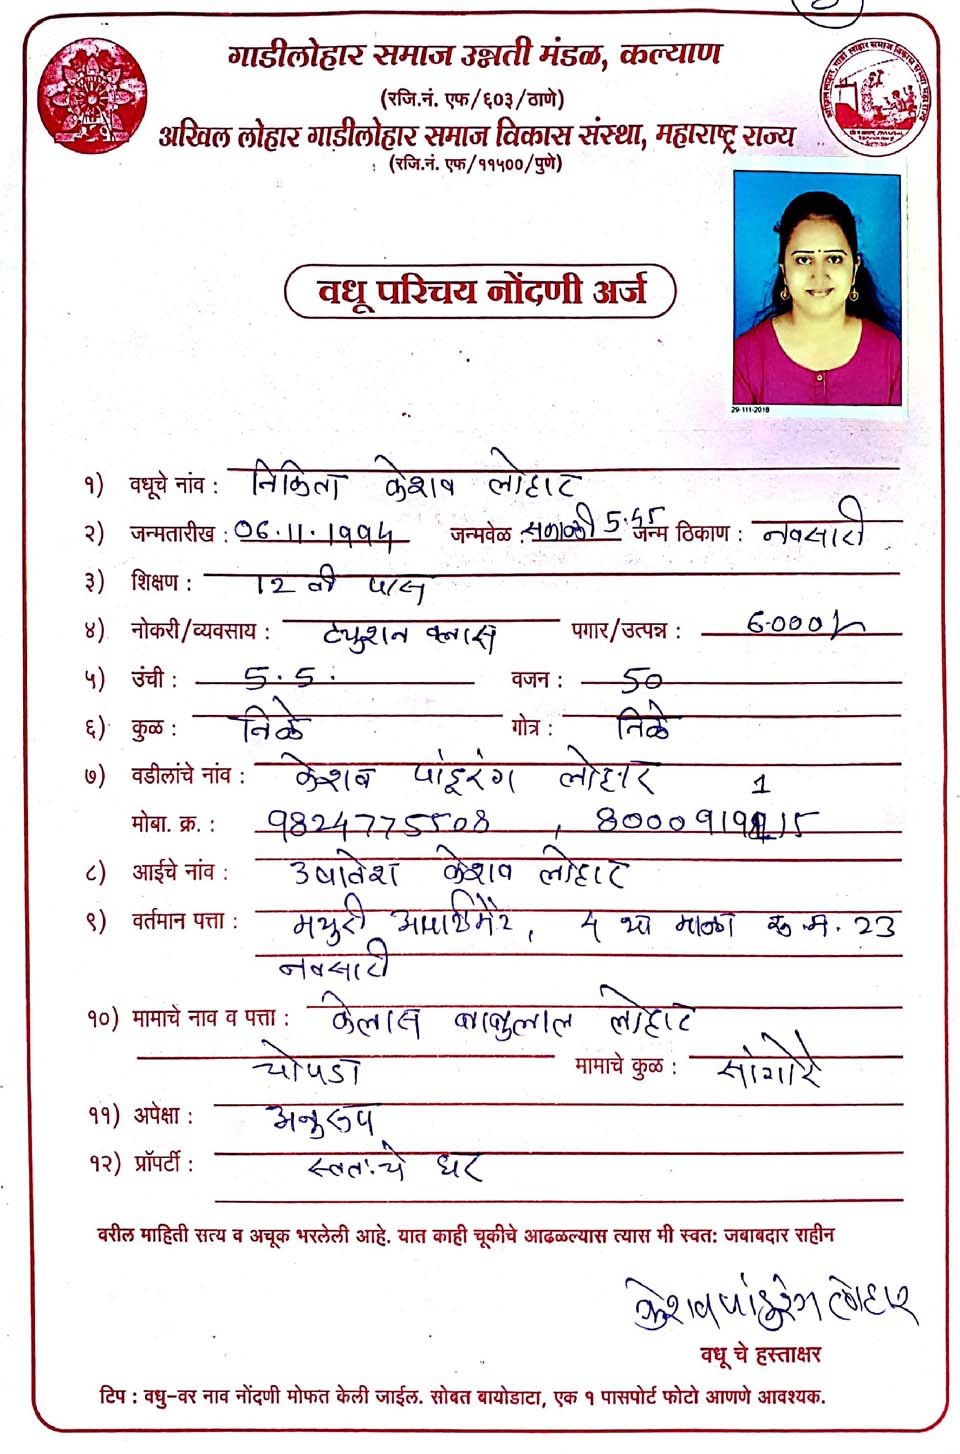 गाडीलोहार समाज उन्नती मंडळ, कल्याण
(रजि.नं. एफ/६०३/ठाणे)
अखिल लोहार गाडीलोहार समाज विकास संस्था, महाराष्ट्र राज्य
(रजि.नं. एफ/११५००/पुणे)
वधू परिचय नोंदणी अर्ज
29-111-2018
१) वधूचे नांव : निकिता केशव लोहार
२) जन्मतारीख : 06.11.1994 जन्मवेळ : सकाळी 5.45 जन्म ठिकाण : नवसारी
३) शिक्षण : 12 वी पास
४) नोकरी/व्यवसाय : ट्युशन क्लास पगार/उत्पन्न : 6000/-
५) उंची : 5.5. वजन : 50
६) कुळ : निळे गोत्र : निळे
७) वडीलांचे नांव : केशव पांडूरंग लोहार
मोबा. क्र. : 9824775508 ,
८) आईचे नांव : केशव लोहार
९) वर्तमान पत्ता : मयुरी अपार्टमेंट, 4 था माळा रु.नं. 23
नवसारी
१०) मामाचे नाव व पत्ता : कैलास बाबुलाल लोहार
चोपडा मामाचे कुळ : सांगोरे
११) अपेक्षा : अनुरूप
१२) प्रॉपर्टी : स्वतःचे घर
वरील माहिती सत्य व अचूक भरलेली आहे. यात काही चूकीचे आढळल्यास त्यास मी स्वतः जबाबदार राहीन
केशव पांडुरंग लोहार
वधू चे हस्ताक्षर
टिप : वधु-वर नाव नोंदणी मोफत केली जाईल. सोबत बायोडाटा, एक १ पासपोर्ट फोटो आणणे आवश्यक.